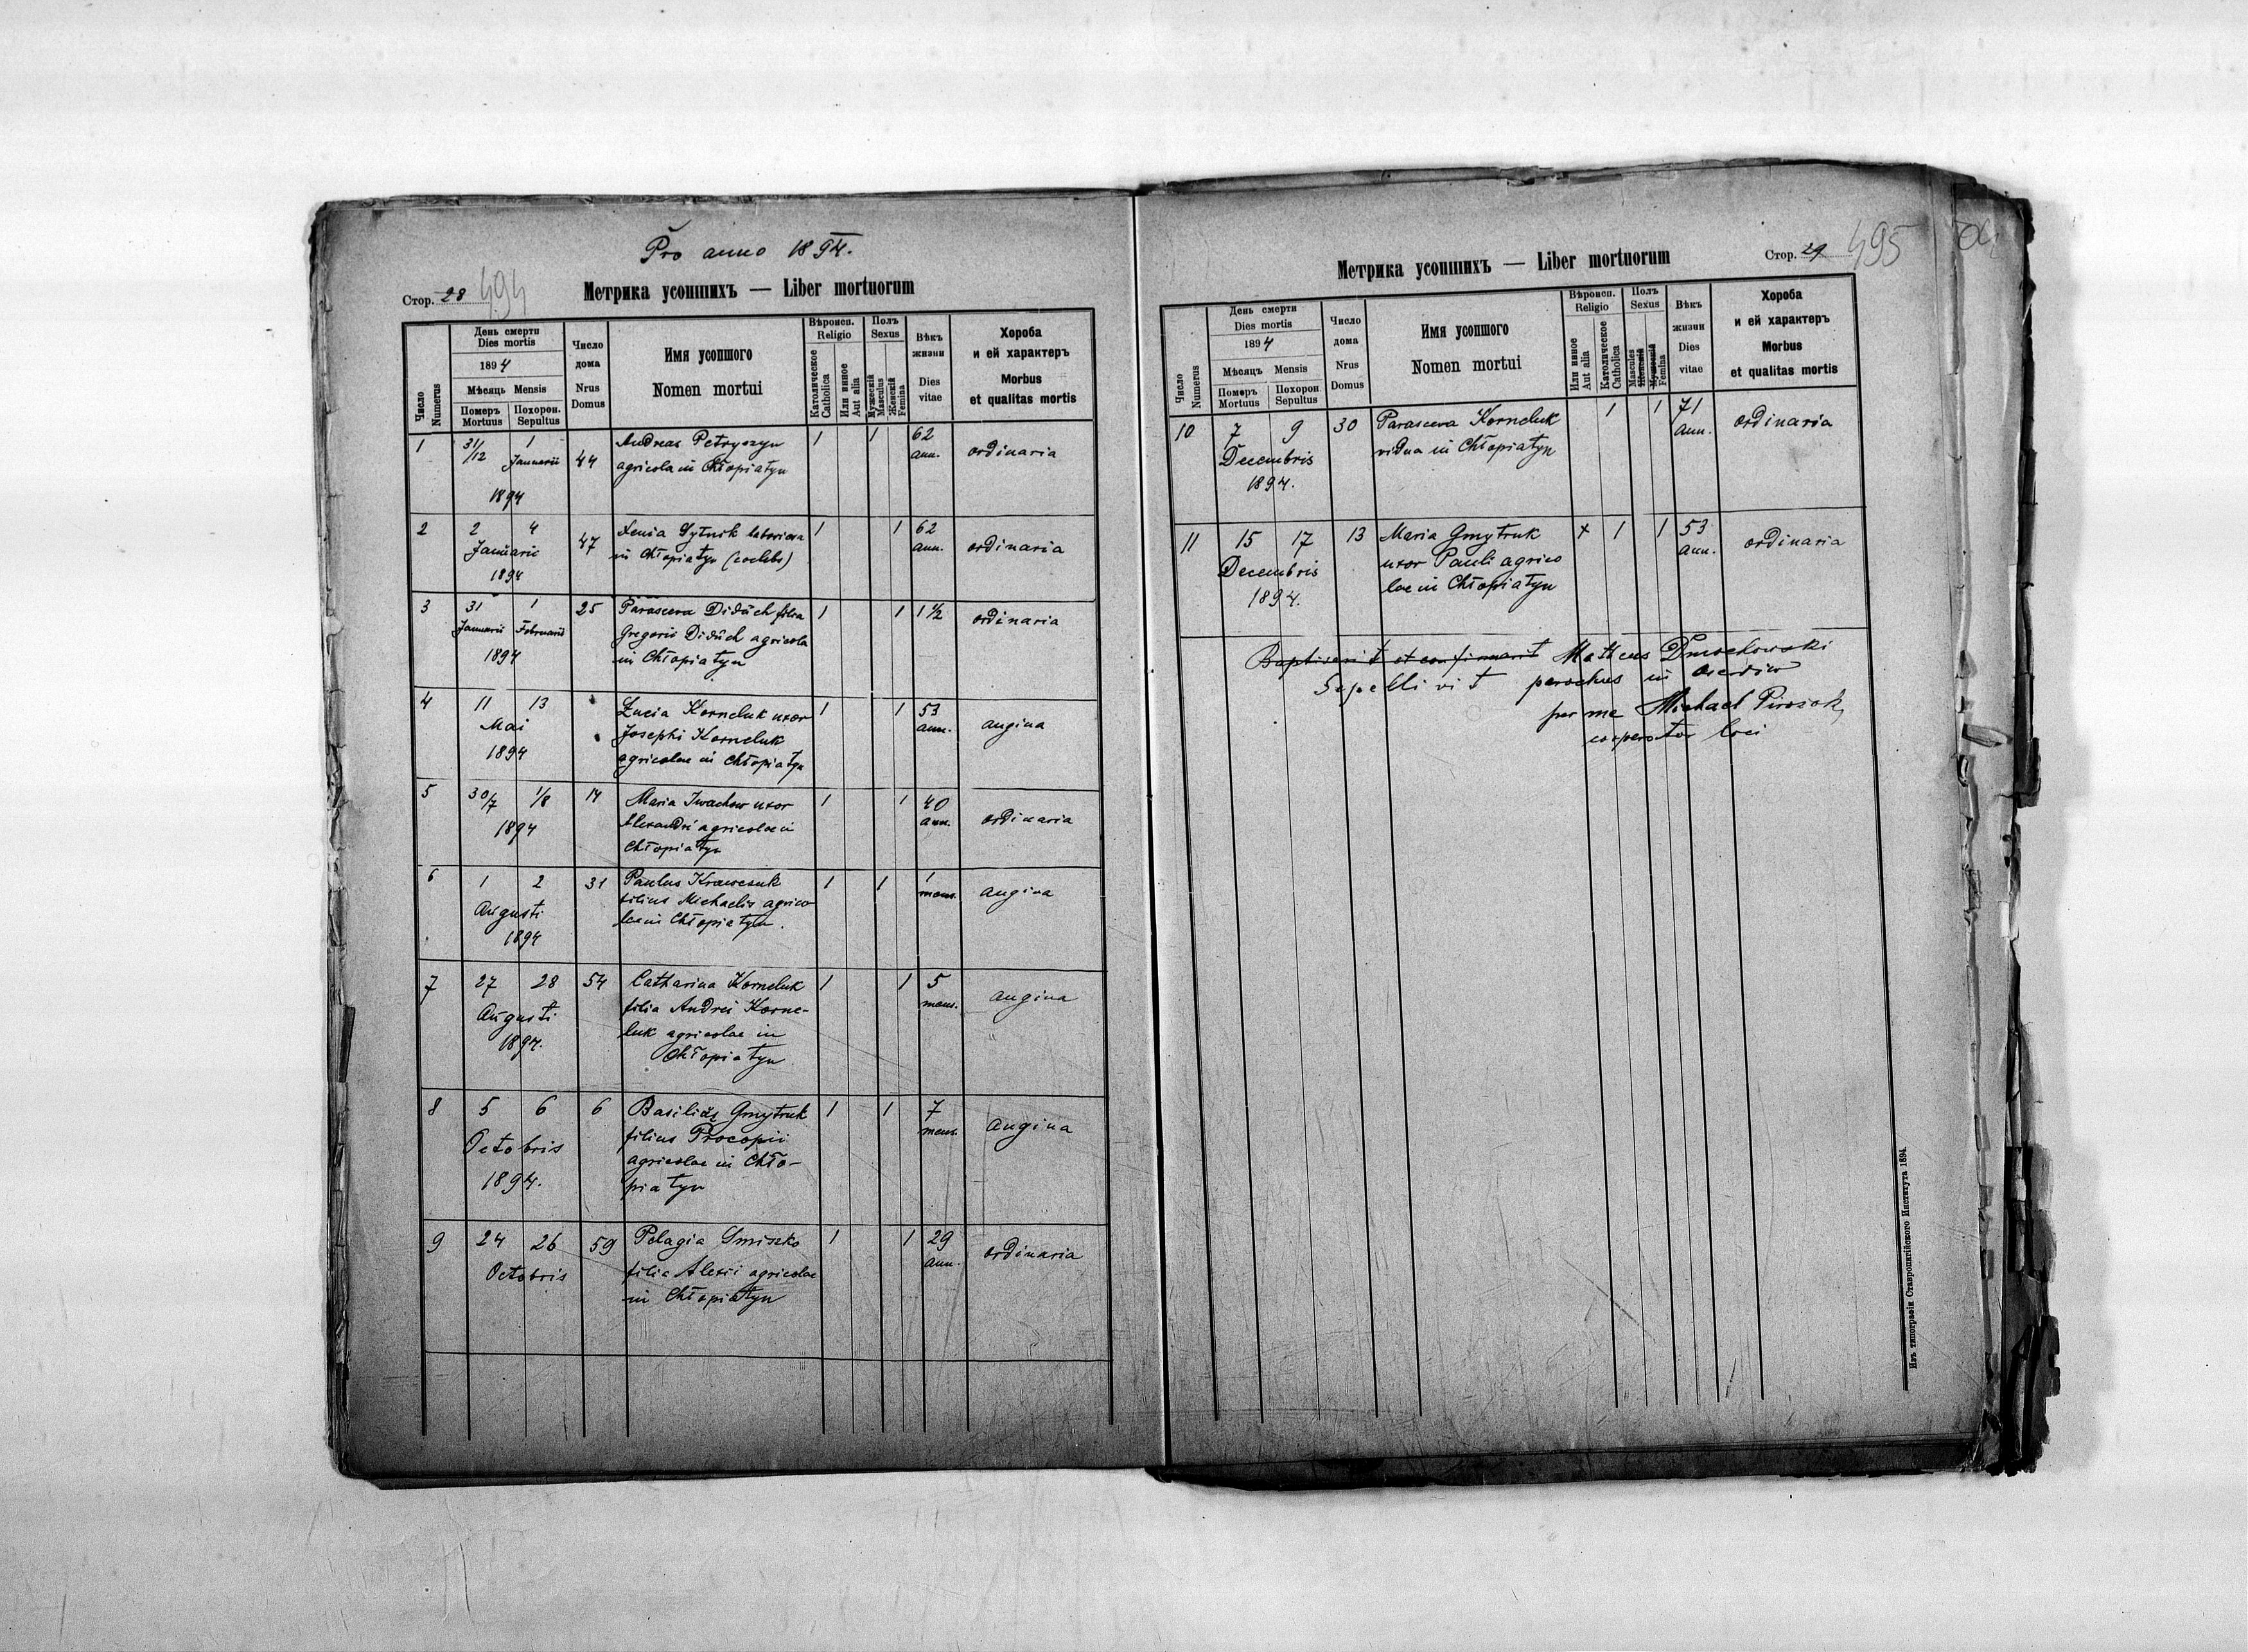 Pro anno 1894.
Стор. 28 494
Метрика усопшихъ — Liber mortuorum
Число Numerus
День смерти
Dies mortis
1894
Мѣсяць Mensis
Померъ Mortuus
Похорон. Sepultus
Число дома
Nrus Domus
Имя усопшого
Nomen mortui
Вѣроисп. Religio
Католическое Catholica
Или инное Aut alia
Полъ Sexus
Мужескій Masculus
Женскій Femina
Вѣкъ жизни
Dies vitae
Хороба
и ей характеръ
Morbus
et qualitas mortis
1 31/12 1 Januarii 1894 44
Andreas Petryszyn
agricola in Chłopiatyn
1 1 62 ann. ordinaria
2 2 4 Januarii 1894 47
Xenia Sytnik
in Chłopiatyn (coelebs)
1 1 62 ann. ordinaria
3 31 Januarii 1 Februarii 1894 25
Parasceva Diduch filia
Gregorii Diduch agricola
in Chłopiatyn
1 1 1 1/2 ordinaria
4 11 13 Mai 1894
Łucia Korneluk uxor
Josephi Korneluk
agricolae in Chłopiatyn
1 1 53 ann. angina
5 30/7 1/8 1894 14
Maria Iwachow uxor
Alexandri agricolae in
Chłopiatyn
1 1 40 ann. ordinaria
6 1 2 Augusti 1894 31
Paulus Krawczuk
filius Michaelis agrico
lae in Chłopiatyn.
1 1 1 mens. angina
7 27 28 Augusti 1894. 54
Catharina Korneluk
filia Andrei Korne-
luk agricolae in
Chłopiatyn
1 1 5 mens. angina
8 5 6 Octobris 1894. 6
Basilius Gmytruk
filius Procopii
agricolae in Chło-
piatyn
1 1 7 mens. angina
9 24 26 Octobris 59
Pelagia Smiszko
filia Alexii agricolae
in Chłopiatyn
1 1 29 ann. ordinaria
Метрика усопшихъ — Liber mortuorum
Стор. 29 495
Число Numerus
День смерти
Dies mortis
1894
Мѣсяць Mensis
Померъ Mortuus
Похорон Sepultus
Число дома
Nrus Domus
Имя усопшого
Nomen mortui
Вѣроисп. Religio
Или инное Aut alia
Католическое Catholica
Полъ Sexus
Masculus Женскій
Мужескій Femina
Вѣкъ жизни
Dies vitae
Хороба
и ей характеръ
Morbus
et qualitas mortis
10 7 9 Decembris 1894. 30
Parasceva Korneluk
vidua in Chłopiatyn
1 1 71 ann. ordinaria
11 15 17 Decembris 1894. 13
Maria Gmytruk
uxor Pauli agrico
lae in Chłopiatyn
+ 1 1 53 ann. ordinaria
Baptisavit et confirmavit Matheus Dmochowski
Sepellivit parochus in
per me Michael
cooperator loci
Изъ типографіи Ставропигійского Института 1894.